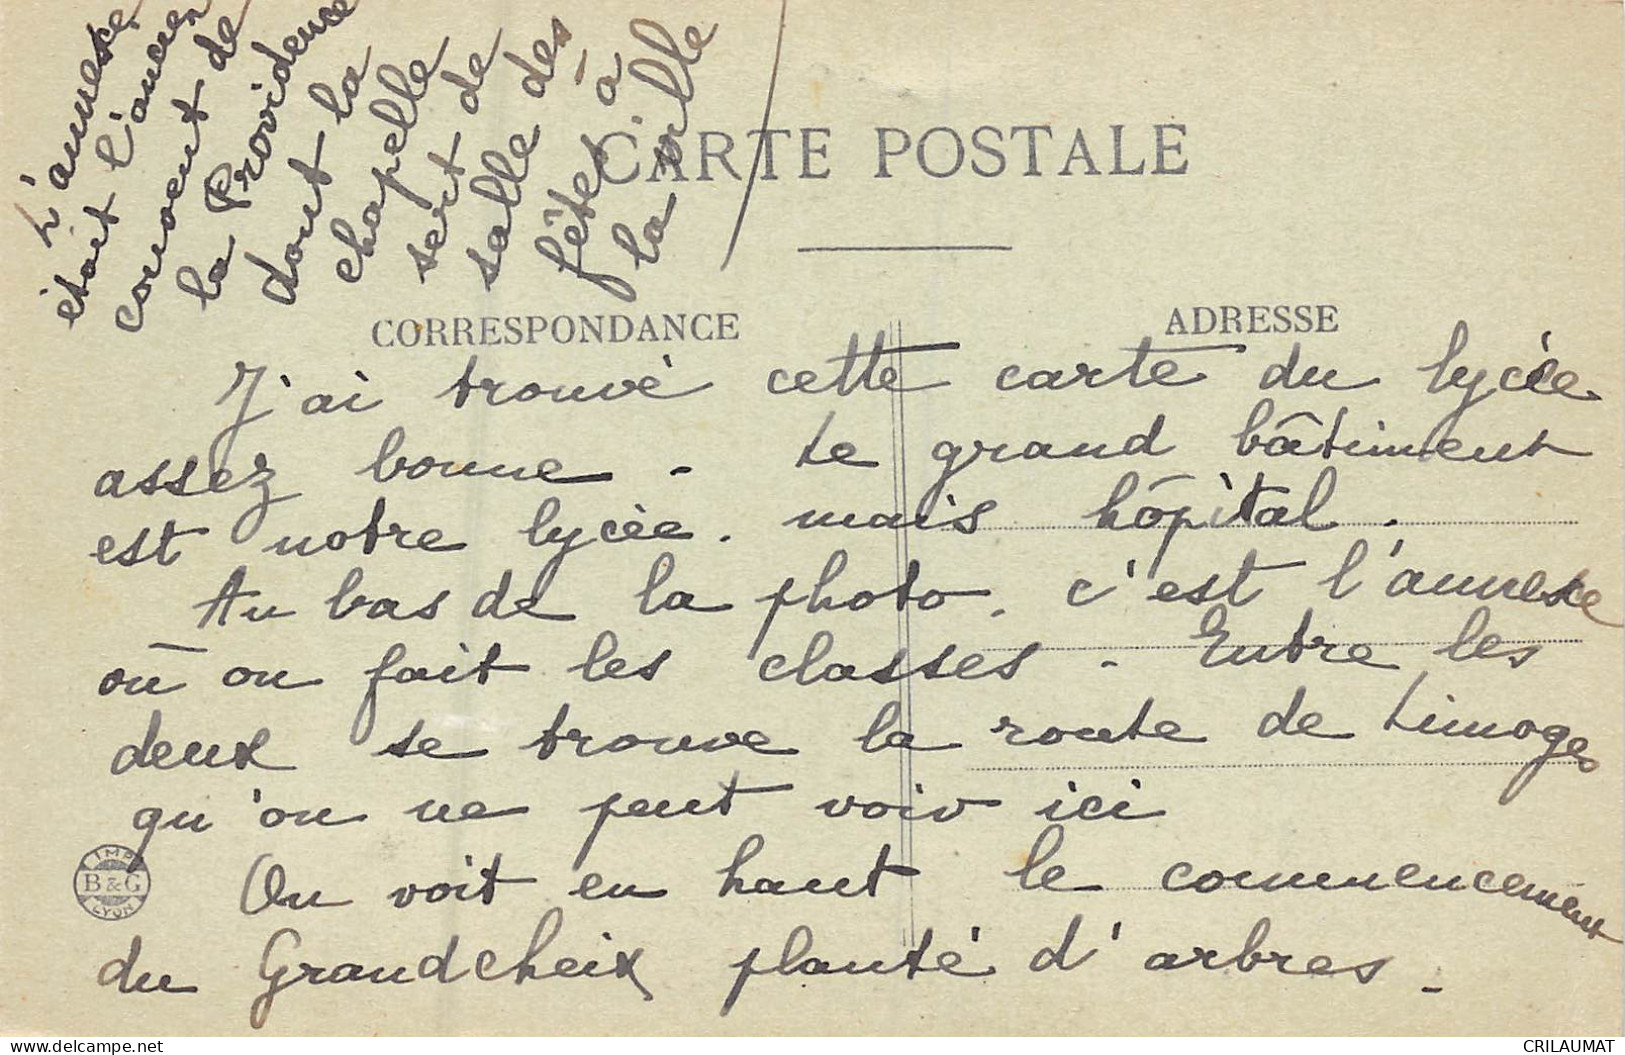 L'annexe
était l'ancien
couvent de
la Providence
dont la
chapelle
sert de
salle des
fêtes à
la ville
CARTE POSTALE
CORRESPONDANCE
ADRESSE
J'ai trouvé cette carte du lycée
assez bonne - Le grand bâtiment
est notre lycée. mais hôpital.
Au bas de la photo, c'est l'annexe
où on fait les classes. Entre les
deux se trouve la route de Limoges
qu'on ne peut voir ici
On voit en haut le commencement
du Grandcheix planté d'arbres.
IMP.
B&G
LYON
delcampe.net
CRILAUMAT